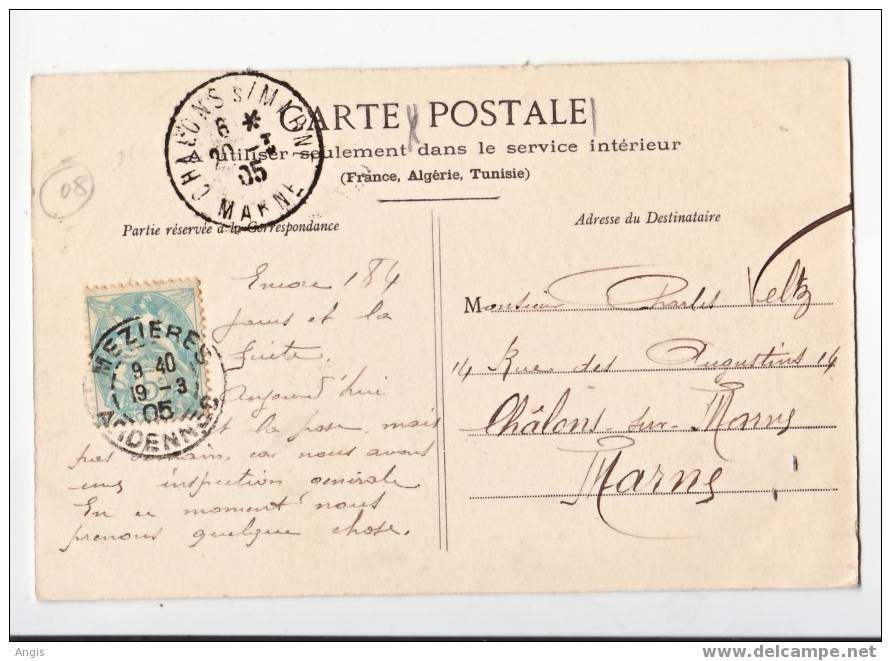 CHALONS S/ MARNE
6 *
20 -3
05
MARNE
CARTE POSTALE
A utiliser seulement dans le service intérieur
(France, Algérie, Tunisie)
08
Partie réservée à la Correspondance
Encore 184
jours et la
fuite.
Aujourd'hui
est la pose, mais
pas demain, car nous avons
une inspection générale
En ce moment nous
prenons quelque chose.
MEZIERES
9 40
19 -3
05
ARDENNES
Adresse du Destinataire
Monsieur Charles Veltz
14 Rue des Augustins 14
Châlons-sur-Marne
Marne
Angis
www.delcampe.net